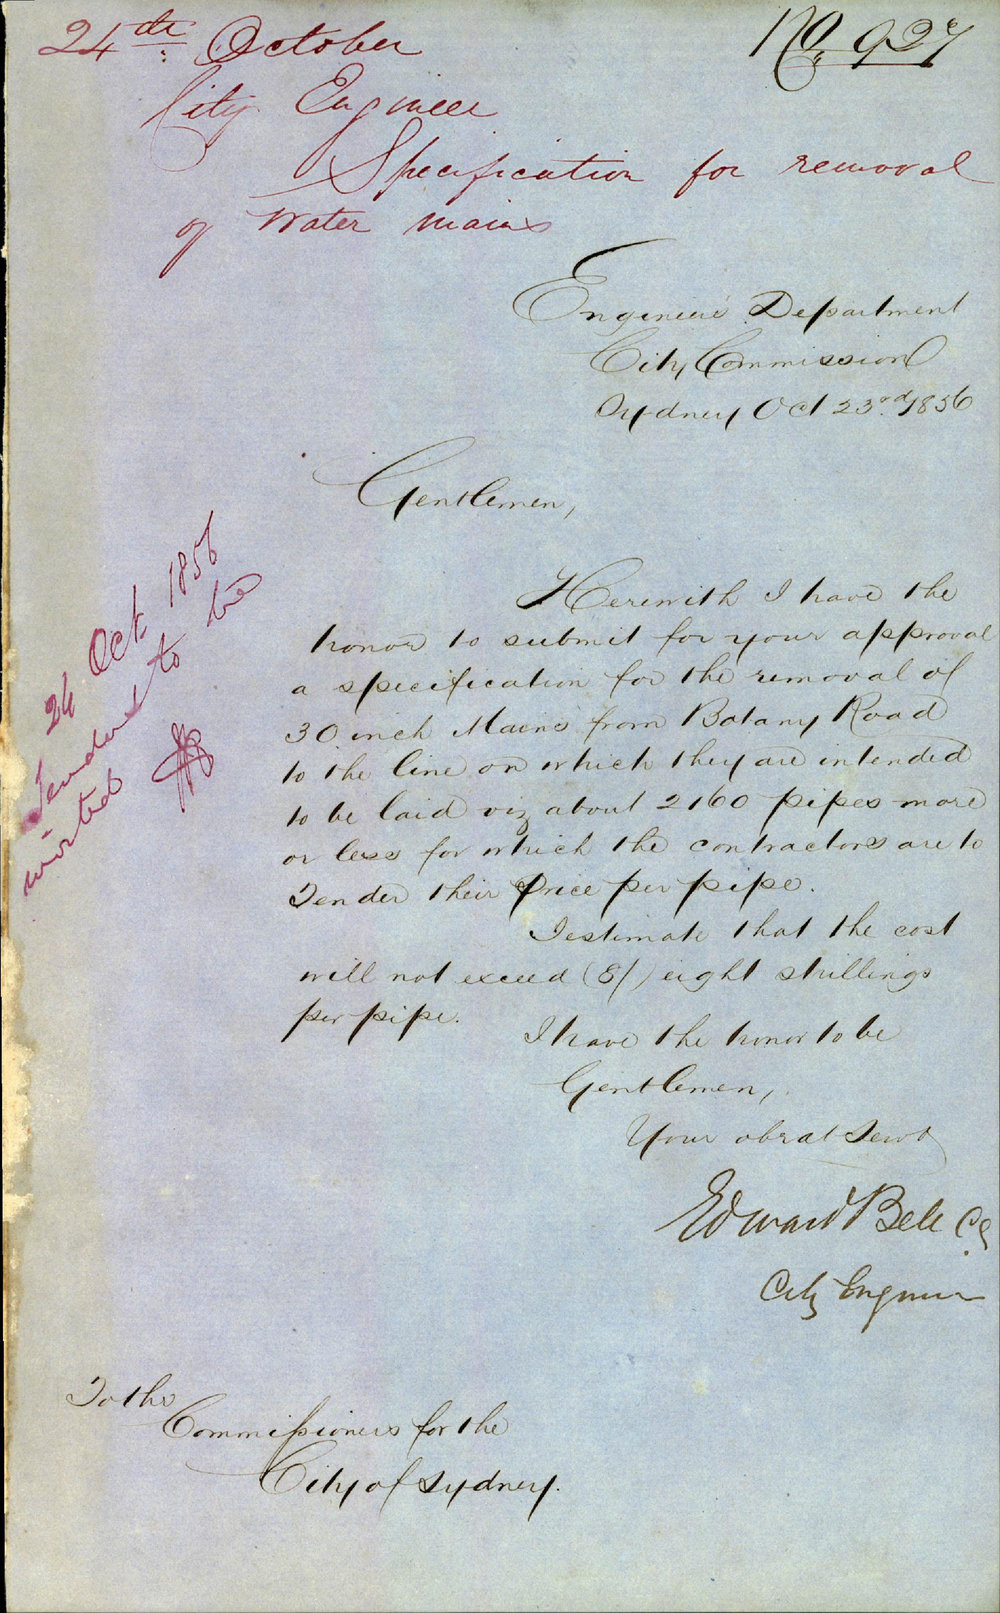 No. 927
24th October
City Engineer
Specification for removal
of Water mains
Engineers' Department
City Commission
Sydney Oct 23rd 1856
Gentlemen,
Herewith I have the
honor to submit for your approval
a specification for the removal of
30 inch Mains from Botany Road
to the line on which they are intended
to be laid viz about 2160 pipes more
or less for which the contractors are to
Tender their Price per pipe.
I estimate that the cost
will not exceed (8/) eight shillings
per pipe.
I have the honor to be
Gentlemen,
Your obedt Servt
Edward Bell CE
City Engineer
To the
Commissioners for the
City of Sydney.
24 Oct. 1856
Tenders to be
invited